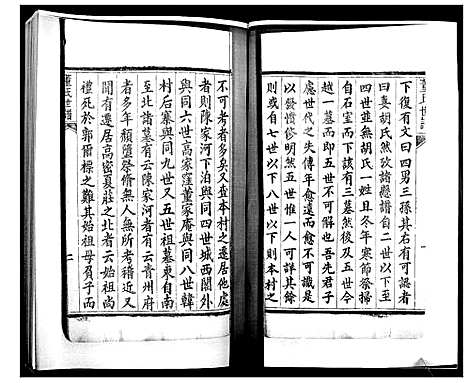 下復有文曰四男三孫其右有可認者
曰袁胡氏然攷諸縣譜自二世以下至
四世並無胡氏一姓且冬年寒節祭掃
自石室而下該有三墓然後及五世今
越一而即五世不可解也吾先君子
處世代之失傳年愈遠而愈不可識
以發憤修明然五世惟一人可詳其餘
則或自七世以下八世以下則本村之
不可考者多矣又查本村之遷居他處
者則陳家河下泊與同四世城西關外
與同六世高密窪董家庵與同八世韓
村后寨與同九世又五世祖墓東自南
至北諸墓有云陳家河者有云青州府
者多年頹墮祭脩無人無所考稽近又
有云遷居高密夏莊之北者云始祖尚
禮死於郭爾標之難其始祖母負子而
二
董氏世譜